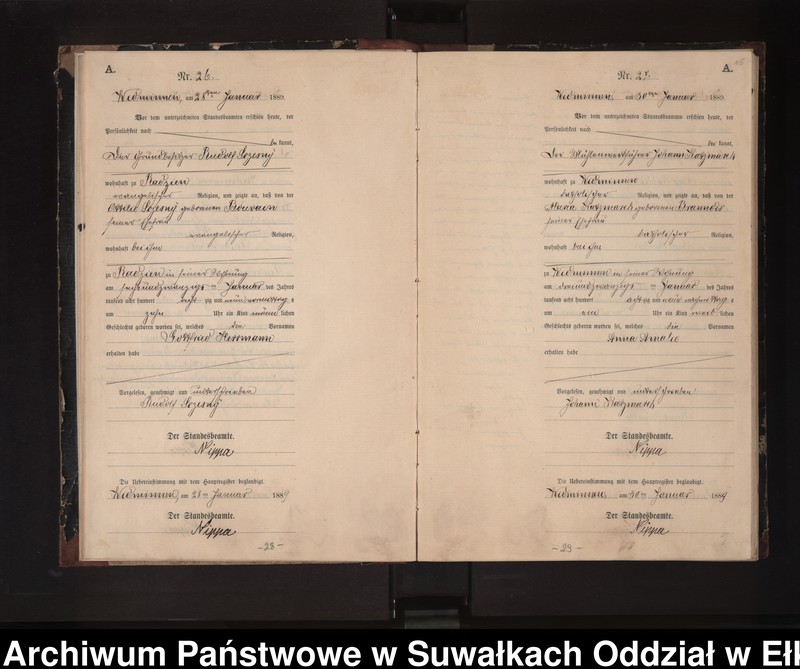 A.
Nr. 26.
Widminnen, am 28ten Januar 1889
Vor dem unterzeichneten Standesbeamten erschien heute, der
Persönlichkeit nach
bekannt,
Der Grundbesitzer Rudolf
wohnhaft zu Radzien
evangelischer Religion, und zeigte an, daß von der
Ottilie geborenen
seiner Ehefrau
evangelischer Religion,
wohnhaft bei ihm
zu Radzien in seiner Wohnung
am sechsundzwanzigsten Januar des Jahres
tausend acht hundert achtzig und neun vormittag s
um zehn Uhr ein Kind männlichen
Geschlechts geboren worden sei, welches die Vornamen
Gottfried Herrmann
erhalten habe
Vorgelesen, genehmigt und unterschrieben
Rudolf
Der Standesbeamte.
Nippa
Die Uebereinstimmung mit dem Hauptregister beglaubigt.
Widminnen, am 28ten Januar 1889
Der Standesbeamte.
Nippa
-28-
A.
Nr. 27.
Widminnen, am 30ten Januar 1889
Vor dem unterzeichneten Standesbeamten erschien heute, der
Persönlichkeit nach
bekannt,
Der Johann
wohnhaft zu Widminnen
Religion, und zeigte an, daß von der
geborenen
seiner Ehefrau
Religion,
wohnhaft bei ihm
zu Widminnen in seiner Wohnung
am dreiundzwanzigsten Januar des Jahres
tausend acht hundert achtzig und neun nachmittag s
um ein Uhr ein Kind weiblichen
Geschlechts geboren worden sei, welches die Vornamen
Anna Amalie
erhalten habe
Vorgelesen, genehmigt und unterschrieben
Johann
Der Standesbeamte.
Nippa
Die Uebereinstimmung mit dem Hauptregister beglaubigt.
Widminnen, am 30ten Januar 1889
Der Standesbeamte.
Nippa
-29-
Archiwum Państwowe w Suwałkach Oddział w Eł